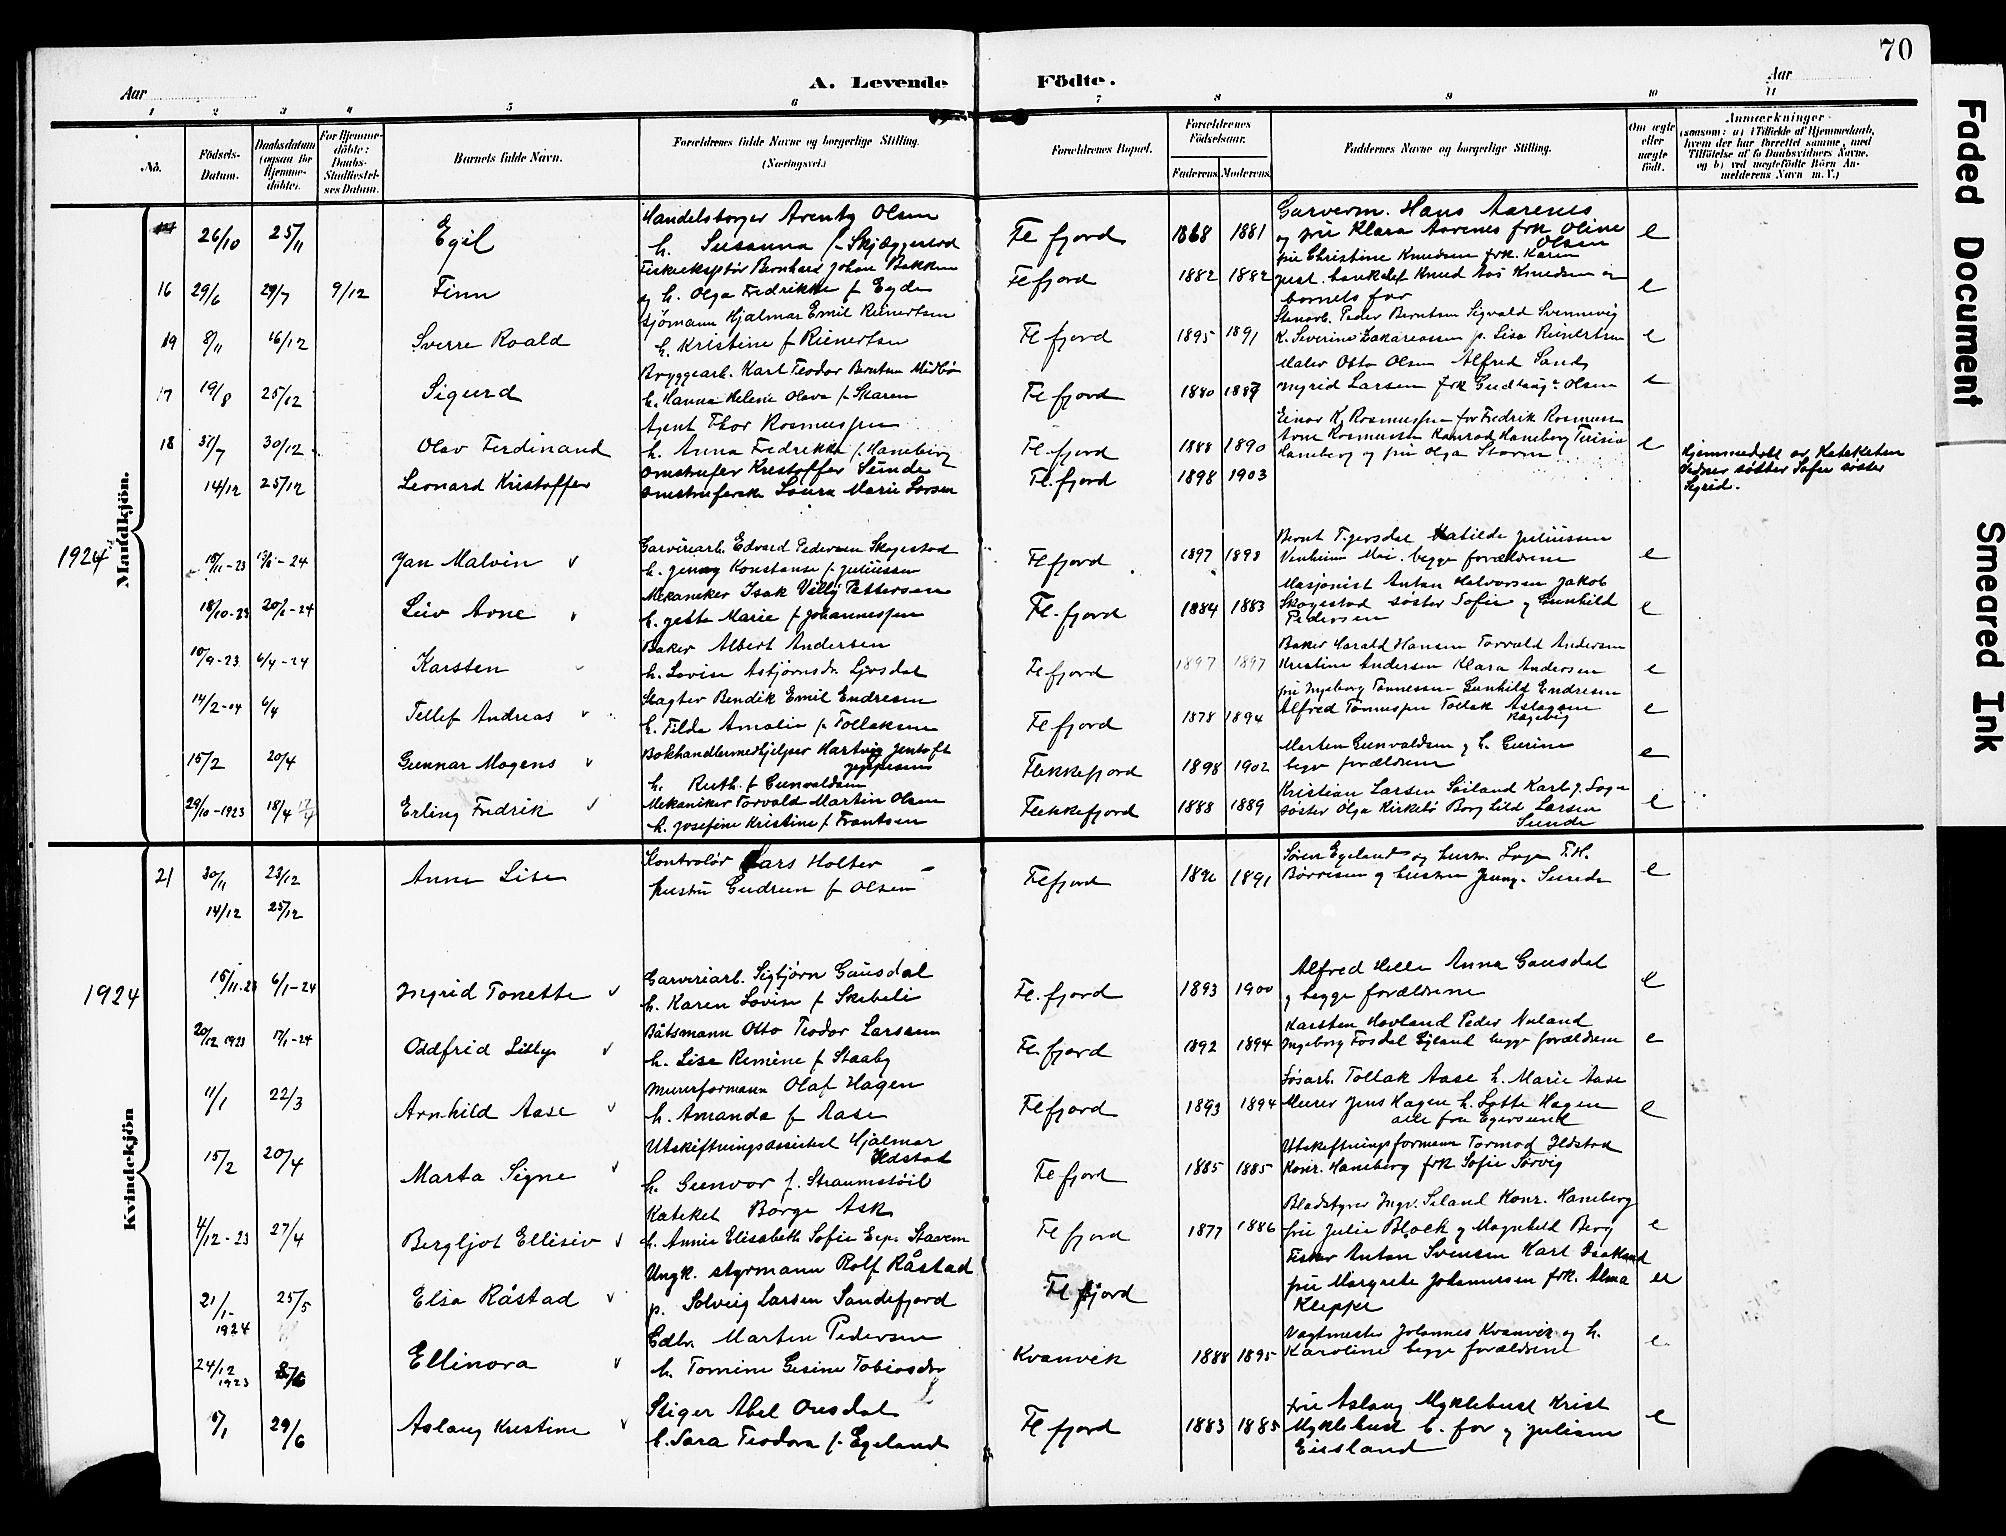 70
Aar
A. Levende Födte.
Aar
1 2 3 4 5 6 7 8 9 10 11
No.
Födsels-Datum.
Daabsdatum (ogsaa for Hjemmedöbte).
For Hjemmedöbte: Daabs-Stadfestelses Datum.
Barnets fulde Navn.
Forældrenes fulde Navne og borgerlige Stilling.
(Næringsvei.)
Forældrenes Bopæl.
Forældrenes Födselsaar.
Faderens Moderens
Faddernes Navne og borgerlige Stilling.
Om ægte eller uægte födt.
Anmærkninger
(saasom: a) i Tilfælde af Hjemmedaab, hvem der har forrettet samme, med Tilföielse af to Daabsvidners Navne, og b) ved uægtefödte Börn Anmelderens Navn m. V.)
Mandkjön.
26/10 25/11 Egil
Handelsborger Arently Olsen
h. Susanna f. Skjæggestad
Fl fjord 1868 1881
Garverm. Hans Aarenes
og fru Klara Aarenes frk Oline Olsen e
16 29/6 29/7 9/12 Finn
Fiskeeksptør Bernhard Johan Bakken
og h. Olga Fredrikke f Eyde
Fl fjord 1882 1882
fru Christine Knudsen frk. Karen
just. bankchef Knud Aas Knudsen og
barnets far e
19 8/11 16/12 Sverre Roald
Sjømann Hjalmar Emil Reinertsen
h. Kristine f Reinertsen
Fl fjord 1895 1891
Stenarb. Peder Berntsen Sigvald Svennevig
K. Severine Zakariassen p. Lisa Reinertsen e
17 19/8 25/12 Sigurd
Bryggearb. Karl Teodor Berntsen Midbø
h. Hanna Helene Olava f. Skaren
Fl fjord 1880 1887
Maler Otto Olsen Alfred Sand
Ingrid Larsen frk Gudtrug Olsen e
18 31/7 30/12 Olav Ferdinand
Agent Thor Rasmussen
h. Anna Fredrikke f. Haneberg
Fl. fjord 1888 1890
Einar K Rasmussen for Fredrik Rasmussen
Arne Rasmussen Konrad Haneberg
Haneberg og fru Olga Storm e
14/12 25/12 Leonard Kristoffer
Omstreifer Kristoffer Sunde
Omstreiferske Laura Marie Larsen
Fl. fjord 1898 1903
Hjemmedøbt av Kateketen
søster Sofie søster
Sigrid.
1924
15/11-23 13/1-24 Jan Malvin v
Garveriarb. Edvard Pedersen Skogestad
h. Jenny Konstanse f Juliussen
Fl fjord 1897 1898
Bernt Tjersdal Matilde Juliussen
Venheim Moi. begge forældrene e
18/10-23 20/1-24 Leiv Arne v
Mekaniker Isak Villy Pettersen
h. Jette Marie f Johannessen
Fl. fjord 1884 1883
Masjonist Anton Halvorsen Jakob
Skogestad søster Sofie og Gunhild
Pedersen e
10/9-23 6/4-24 Karsten
Baker Albert Andersen
h. Lovise Asbjørnsdr. Ljosdal
Fl fjord 1897 1897
Baker Harald Hansen Torvald Andersen
Kristine Andersen Klara Andersen e
14/2-04 6/4 Tellef Andreas v
Slagter Bendik Emil Endresen
h. Tilda Amalie f Tollaksen
Fl fjord 1878 1894
fru Ingeborg Tønnessen Gunhild Endresen
Alfred Tønnessen Tollak Aslagsen
e
15/2 20/4 Gunnar Mogens v
Bokhandlermedhjelper Hartvig Jentoft
Jeppesen
h. Ruth f Gunvaldsen
Flekkefjord 1898 1902
Marten Gunvaldsen og h. Gurine
begge forældrene e
29/10-1923 18/4 Erling Fredrik v
Mekaniker Torvald Martin Olsen
h. Josefine Kristine f Frantsen
Flekkefjord 1888 1889
Kristian Larsen Søiland Karl J.
søster Olga Kirkebø Borghild Larsen
Sunde e
Kvindekjön
21 30/11 23/12 Anne Lise
Kontrolør Lars Holter
hustru Gudrun f Olsen
Fl fjord 1891
Søren Egeland og hustru
Børresen og hustru Jenny Sunde e
14/12 25/12
1924
15/11-23 6/1-24 Ingrid Tonette v
Garveriarb. Sigbjørn Gausdal
h. Karen Lovise f Skibeli
Fl. fjord 1893 1900
Alfred Helle Anna Gausdal
og begge forældrene e
20/12 1923 17/1-24 Oddfrid Lilly v
Båtsmann Otto Teodor Larssen
h. Lise Remine f Staaby
Fl. fjord 1892 1894
Karsten Hovland Peder Nuland
Ingeborg Fosdal Eiland begge forældrene e
11/1 22/3 Arnhild Aase v
Murerformann Olaf Hagen
h. Amanda f Aase
Fl fjord 1893 1894
Løsarb. Tollak Aase h. Marie Aase
Murer Jens Hagen h. Lotte Hagen
alle fra Egersund e
15/2 20/4 Marta Signe v
Utskiftningsassistent Hjalmar
Ildstad
h. Gunvor f. Straumstøil
Fl fjord 1885 1885
Utskiftningsformann Tormod Ildstad
Konr. Haneberg frk Sofie Sørvig
4/12-23 27/4 Bergljot Ellisiv v
Kateket Børge Ask
h. Annie Elisabeth Sofie Esp. Staavem
Fl fjord 1877 1886
Bladstyrer Ingv. Seland Konr. Haneberg
fru Julie Block og Magnhild Berg e
21/1-1924 25/5 Elsa Råstad v
Ungk. styrmann Rolf Råstad
p. Solveig Larsen Sandefjord
Fl fjord
Fisker Anton Svensen Karl Isakland
fru Margrete Johannesen frk. Alma
Kleppe ue
24/12 1923 8/6 Ellinora v
Gdbr. Marten Pedersen
h. Tomine Gesine Tobiasdtr
Kvanvik 1888 1895
Vagtmester Johannes Kvanvik og h.
Karoline begge forældrene e
5/1 29/6 Aslaug Kristine v
Stiger Abel Ousdal
h. Sara Teodora f. Egeland
Fl fjord 1883 1885
fru Aslaug Myklebust Krist
Myklebust b. far og Juliane
Eiesland e
Faded Document
Smeared Ink